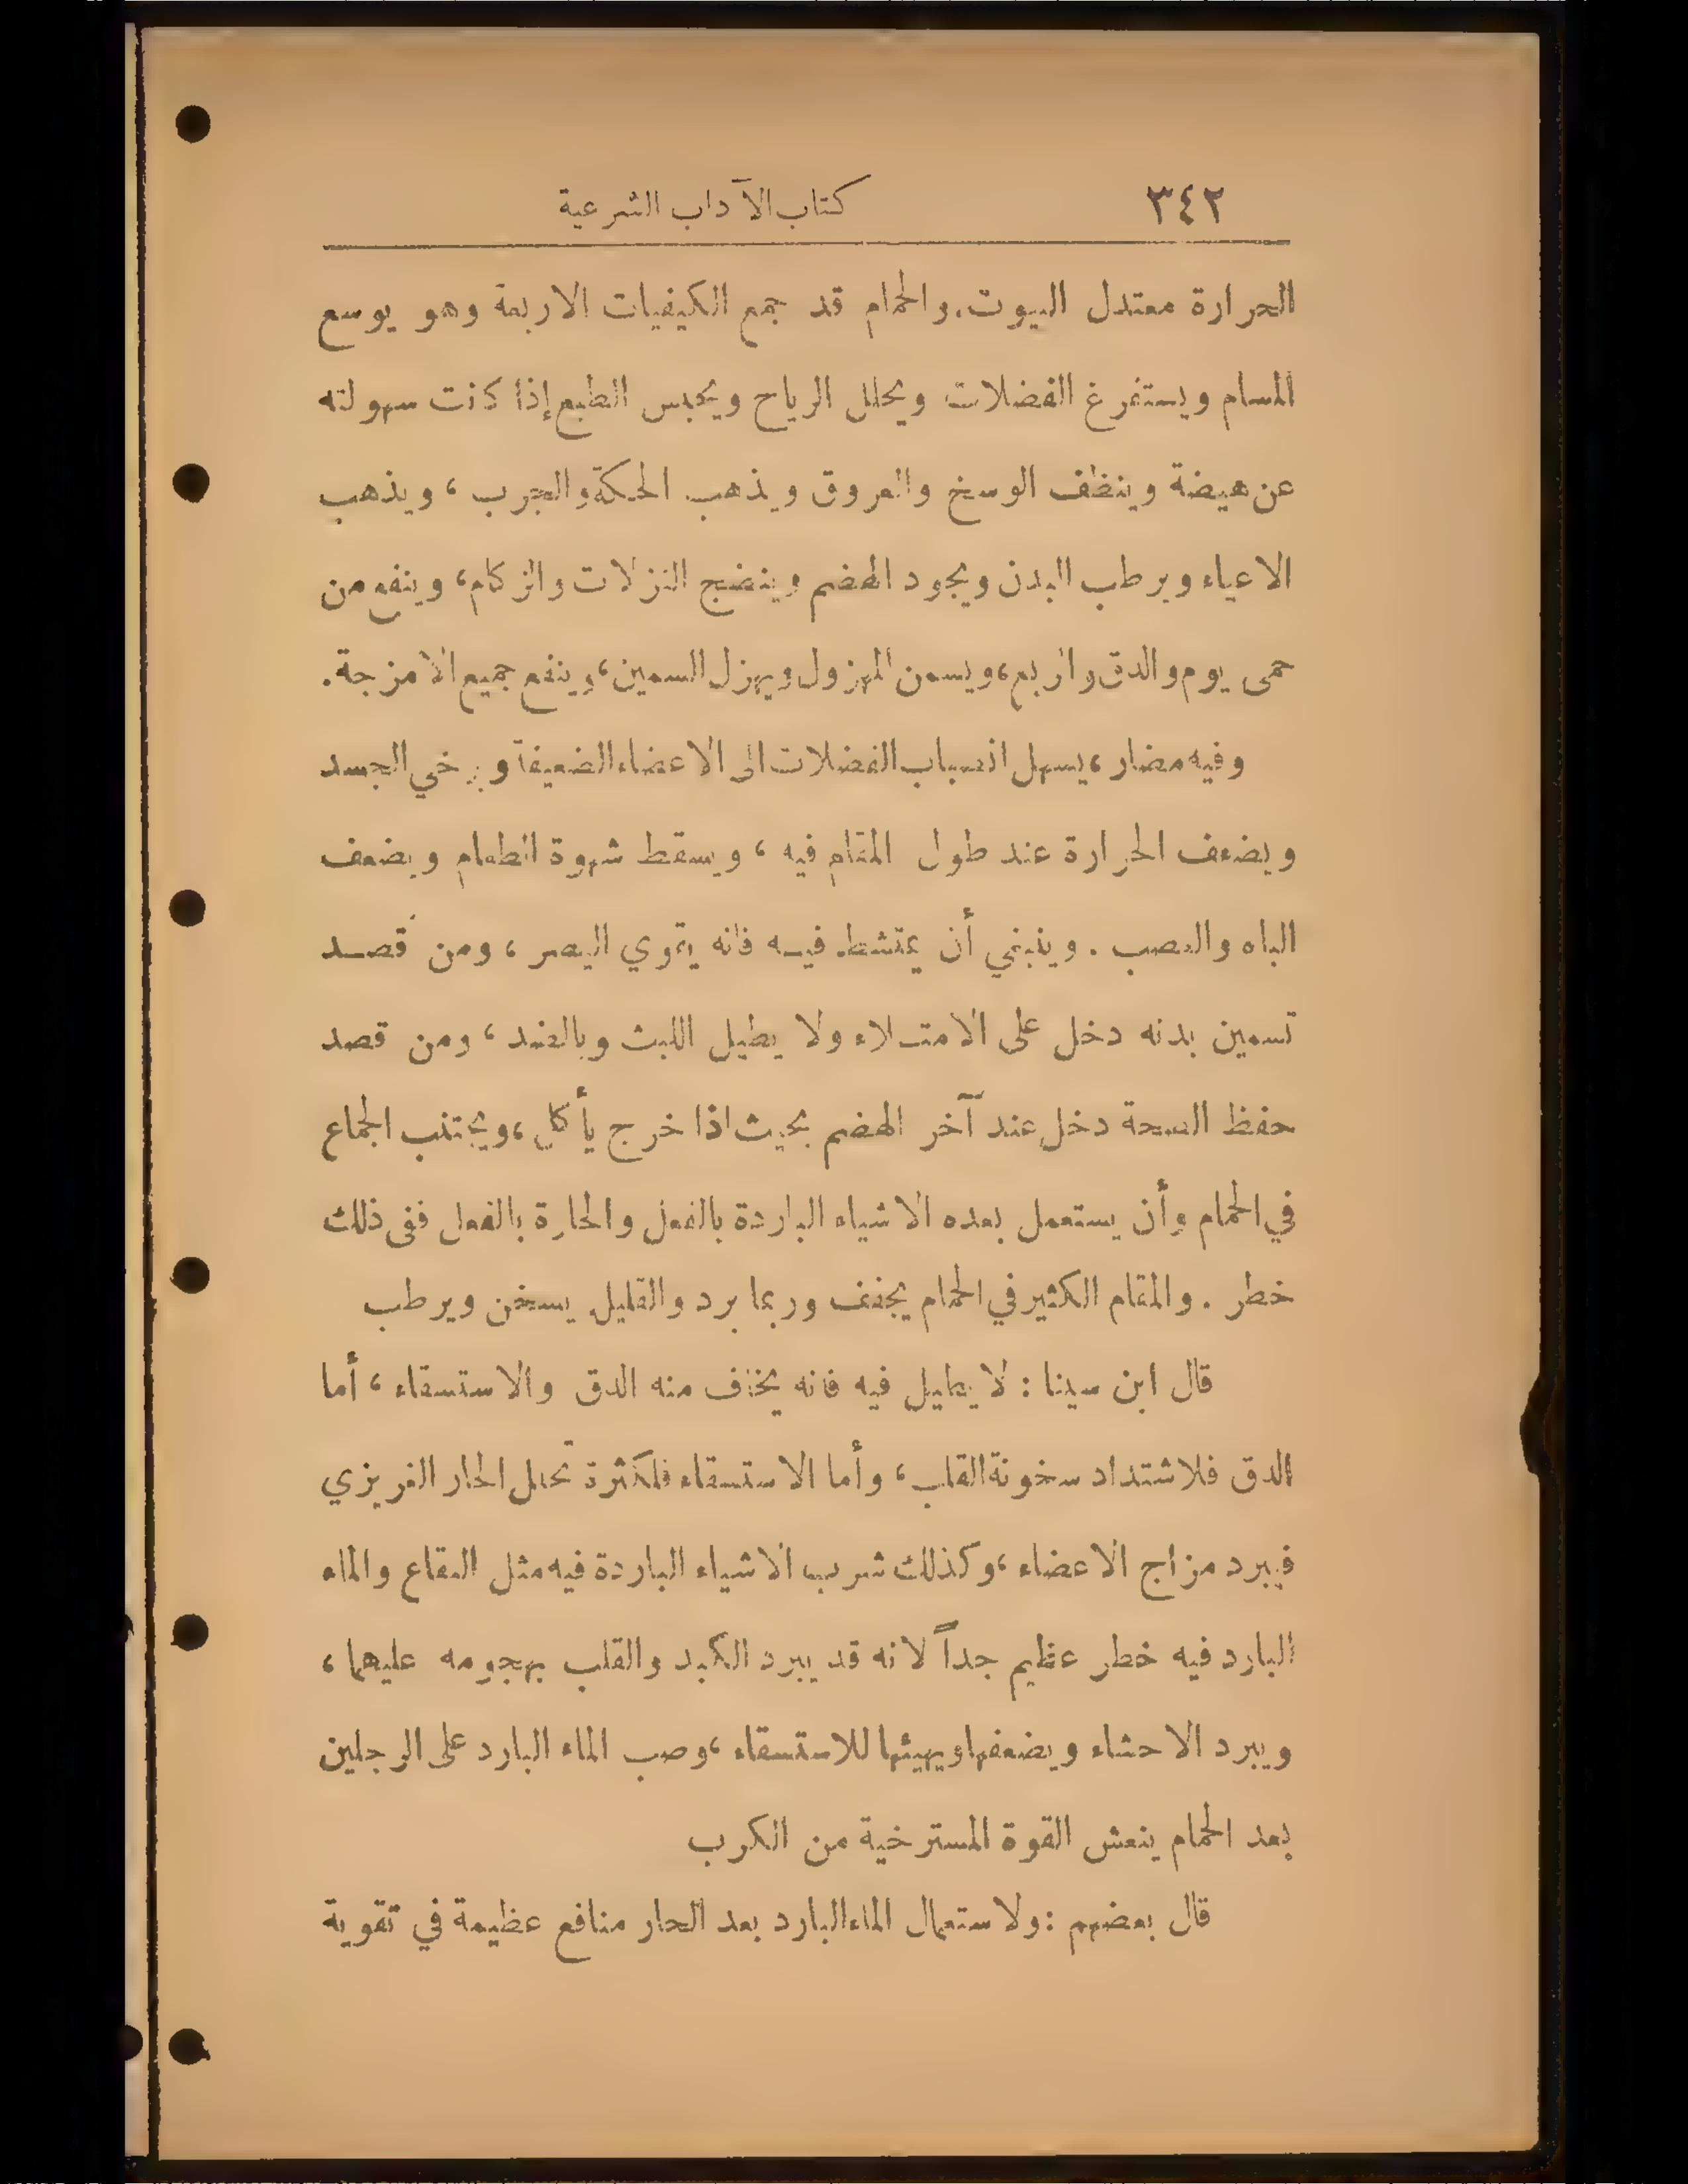 ٣٤٢ كتاب الآداب الشرعية
الحرارة معتدل البيوت. والحمام قد جمع الكيفيات الاربعة وهو يوسع
المسام ويستفرغ الفضلات ويحلل الرياح ويحبس الطبع إذا كانت سهولته
عن هيضة وينظف الوسخ والعروق ويذهب الحكة والجرب ، ويذهب
الاعياء ويرطب البدن ويجود الهضم وينضج النزلات والزكام، وينفع من
حمى يوم والدق والربع، ويسمن المهزول ويهزل السمين، وينفع جميع الامزجة.
وفيه مضار ، يسهل انصباب الفضلات الى الاعضاء الضعيفة ويرخي الجسد
ويضعف الحرارة عند طول المقام فيه ، ويسقط شهوة الطعام ويضعف
الباه والعصب . وينبغي أن يمتشط فيه فانه يقوي البصر ، ومن قصد
تسمين بدنه دخل على الامتلاء ولا يطيل اللبث وبالضد ، ومن قصد
حفظ الصحة دخل عند آخر الهضم بحيث اذا خرج يأكل ، ويجتنب الجماع
في الحمام وأن يستعمل بعده الاشياء الباردة بالفعل والحارة بالفعل ففى ذلك
خطر . والمقام الكثير في الحمام يجفف وربما برد والقليل يسخن ويرطب
قال ابن سينا : لا يطيل فيه فانه يخاف منه الدق والاستسقاء ، أما
الدق فلاشتداد سخونة القلب ، وأما الاستسقاء فلكثرة تحلل الحار الغريزي
فيبرد مزاج الاعضاء ، وكذلك شرب الاشياء الباردة فيه مثل الفقاع والماء
البارد فيه خطر عظيم جداً لانه قد يبرد الكبد والقلب بهجومه عليهما ،
ويبرد الاحشاء ويضعفها ويهيئها للاستسقاء ، وصب الماء البارد على الرجلين
بعد الحمام ينعش القوة المسترخية من الكرب
قال بعضهم : ولاستعمال الماء البارد بعد الحار منافع عظيمة في تقوية